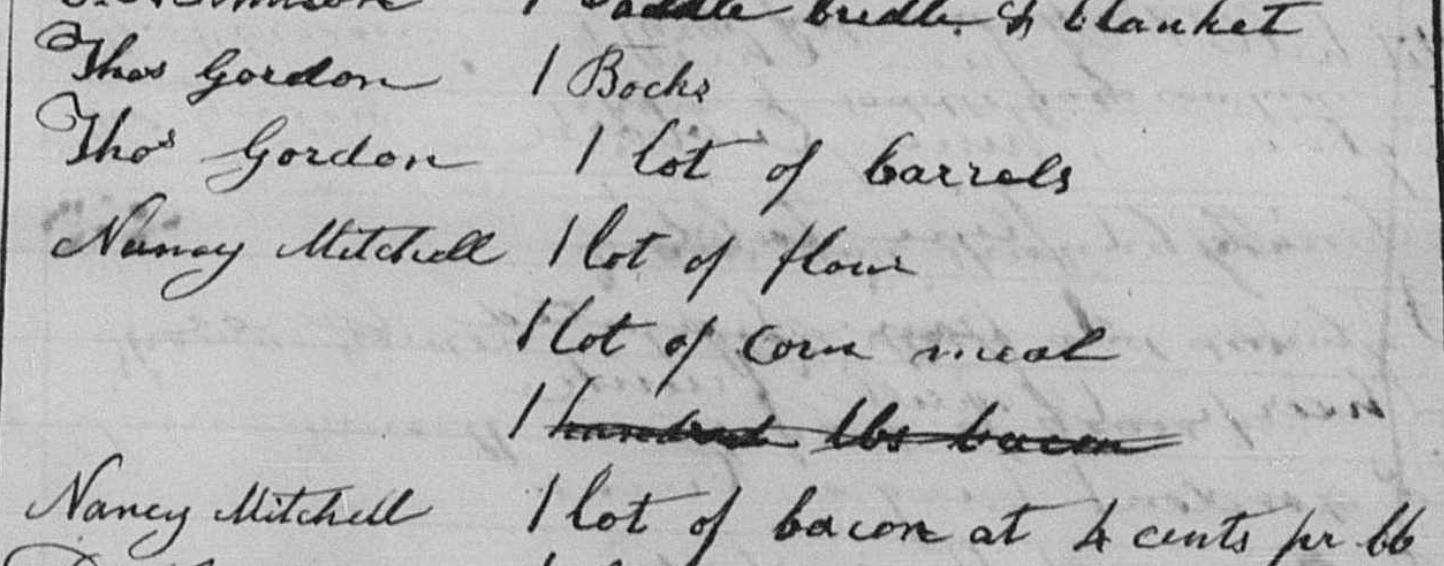 1 Saddle bridle & blanket
Thos Gordon 1 Bocks
Thos Gordon 1 lot of barrels
Nancy Mitchell 1 lot of flour
1 lot of corn meal
1 hundred lbs bacon
Nancy Mitchell 1 lot of bacon at 4 cents pr lb